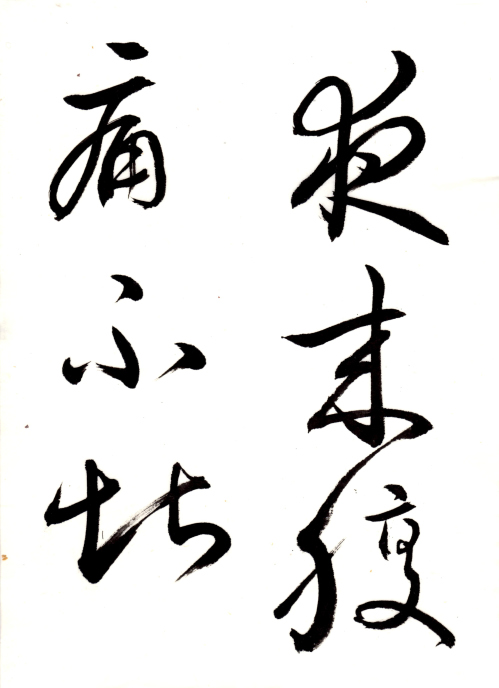 夜来腹
痛不堪